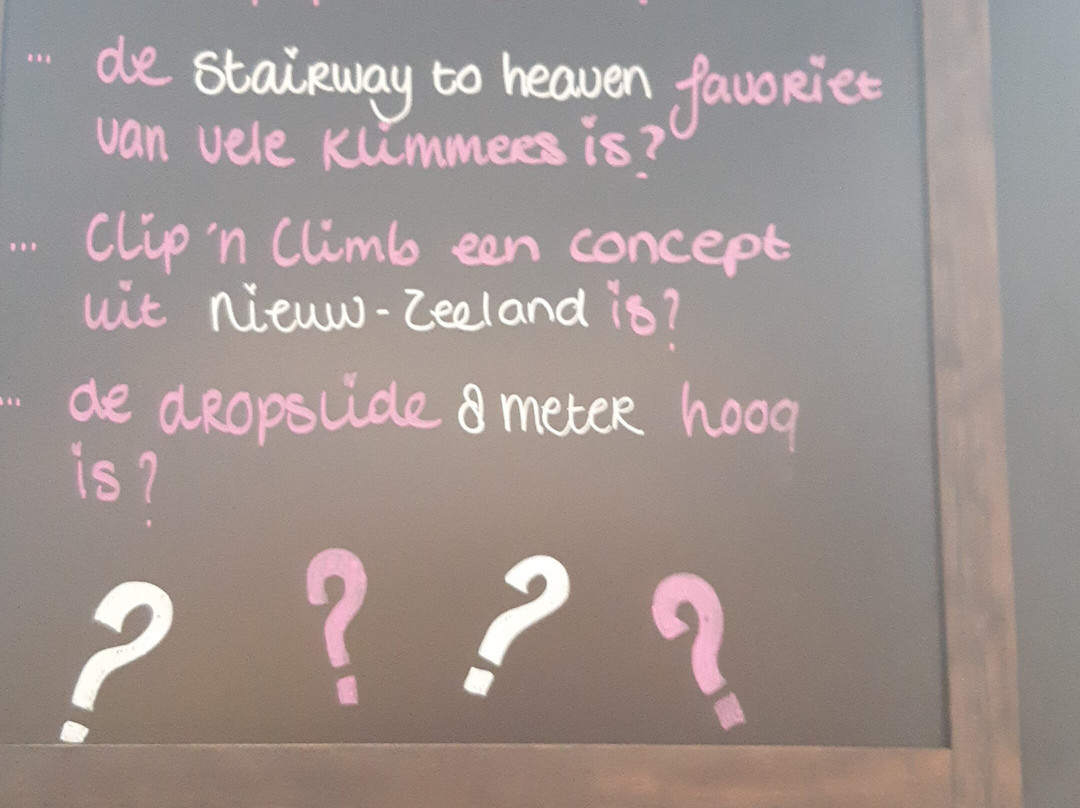 ... de stairway to heaven favoriet
van vele klimmers is?
... Clip 'n Climb een concept
uit Nieuw-Zeeland is?
... de dropslide 8 meter hoog
is?
? ? ? ?